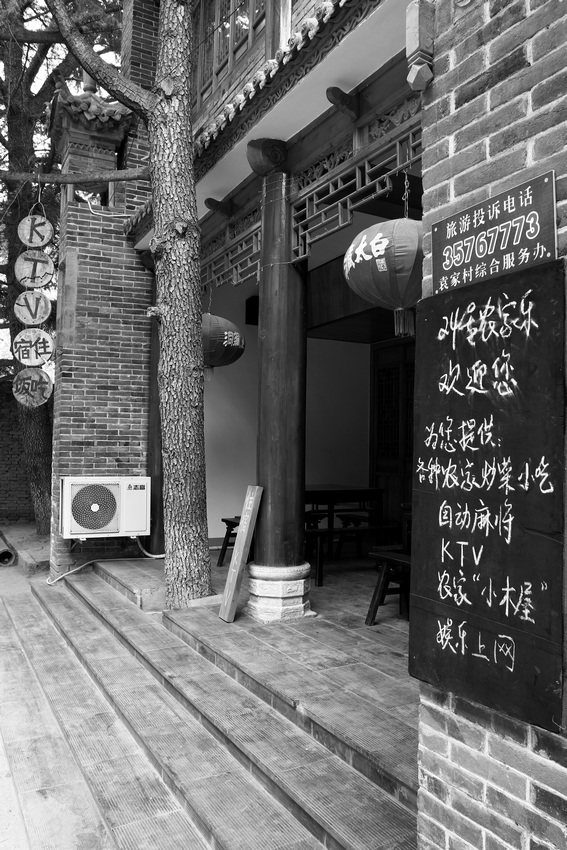 KTV
住宿
旅游投诉电话
35767773
袁家村综合服务办.
农家乐
欢迎您
为您提供:
各种农家炒菜小吃
自动麻将
KTV
农家"小木屋"
娱乐上网
白太